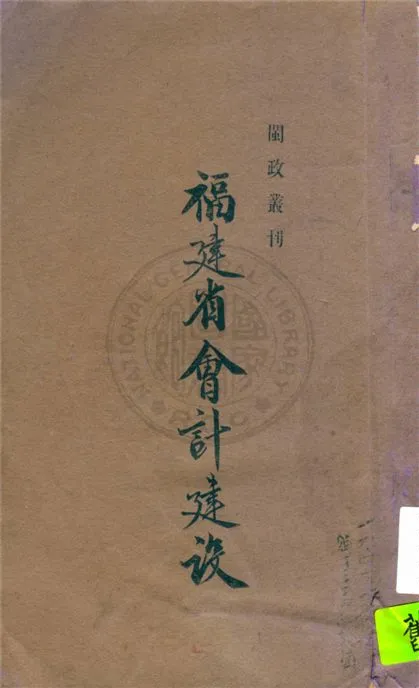 閩政叢刊
福建省會計建設
NATIONAL CENTRAL LIBRARY
舊